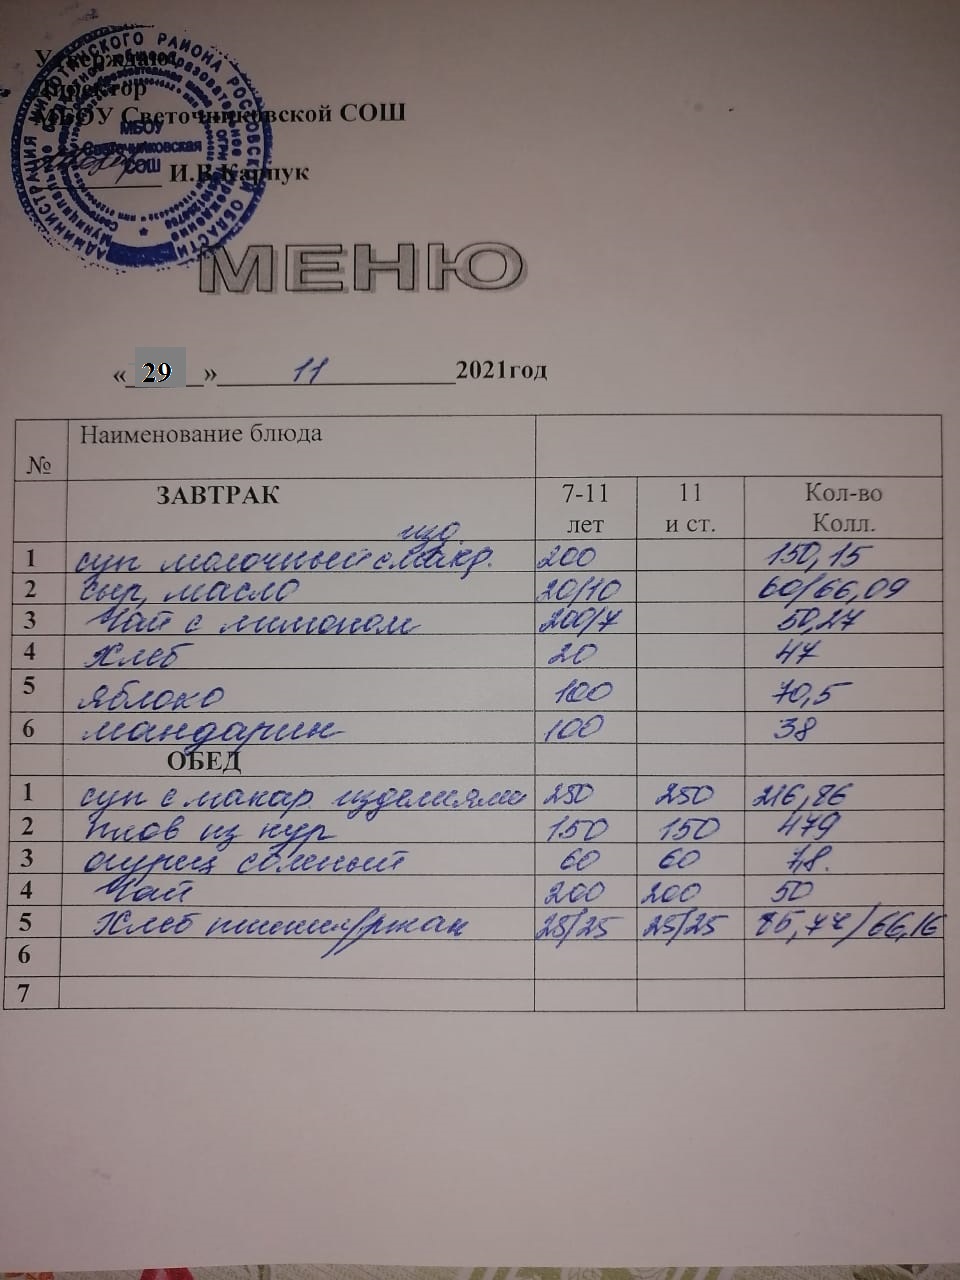 Утверждаю
Директор
МБОУ Светочниковской СОШ
И.В.Карпук
АДМИНИСТРАЦИЯ МИЛЮТИНСКОГО РАЙОНА РОСТОВСКОЙ ОБЛАСТИ
МБОУ
Светочниковская
СОШ
МЕНЮ
« 29 » 11 2021год
№ Наименование блюда
ЗАВТРАК 7-11 лет 11 и ст. Кол-во Колл.
изд.
1 суп молочный с макр. 200 150,15
2 сыр, масло 20/10 60/66,09
3 Чай с лимоном 200/7 50,27
4 Хлеб 20 47
5 яблоко 100 70,5
6 мандарин 100 38
ОБЕД
1 суп с макар. изделиями 250 250 216,86
2 плов из кур 150 150 479
3 огурец соленый 60 60 7,8.
4 Чай 200 200 50
5 Хлеб пшенич/ржан 25/25 25/25 85,77/66,16
6
7